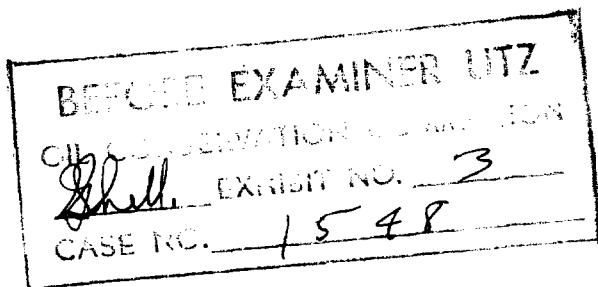 BEFORE EXAMINER UTZ
OIL CONSERVATION COMMISSION
Shell EXHIBIT NO. 3
CASE NO. 1548